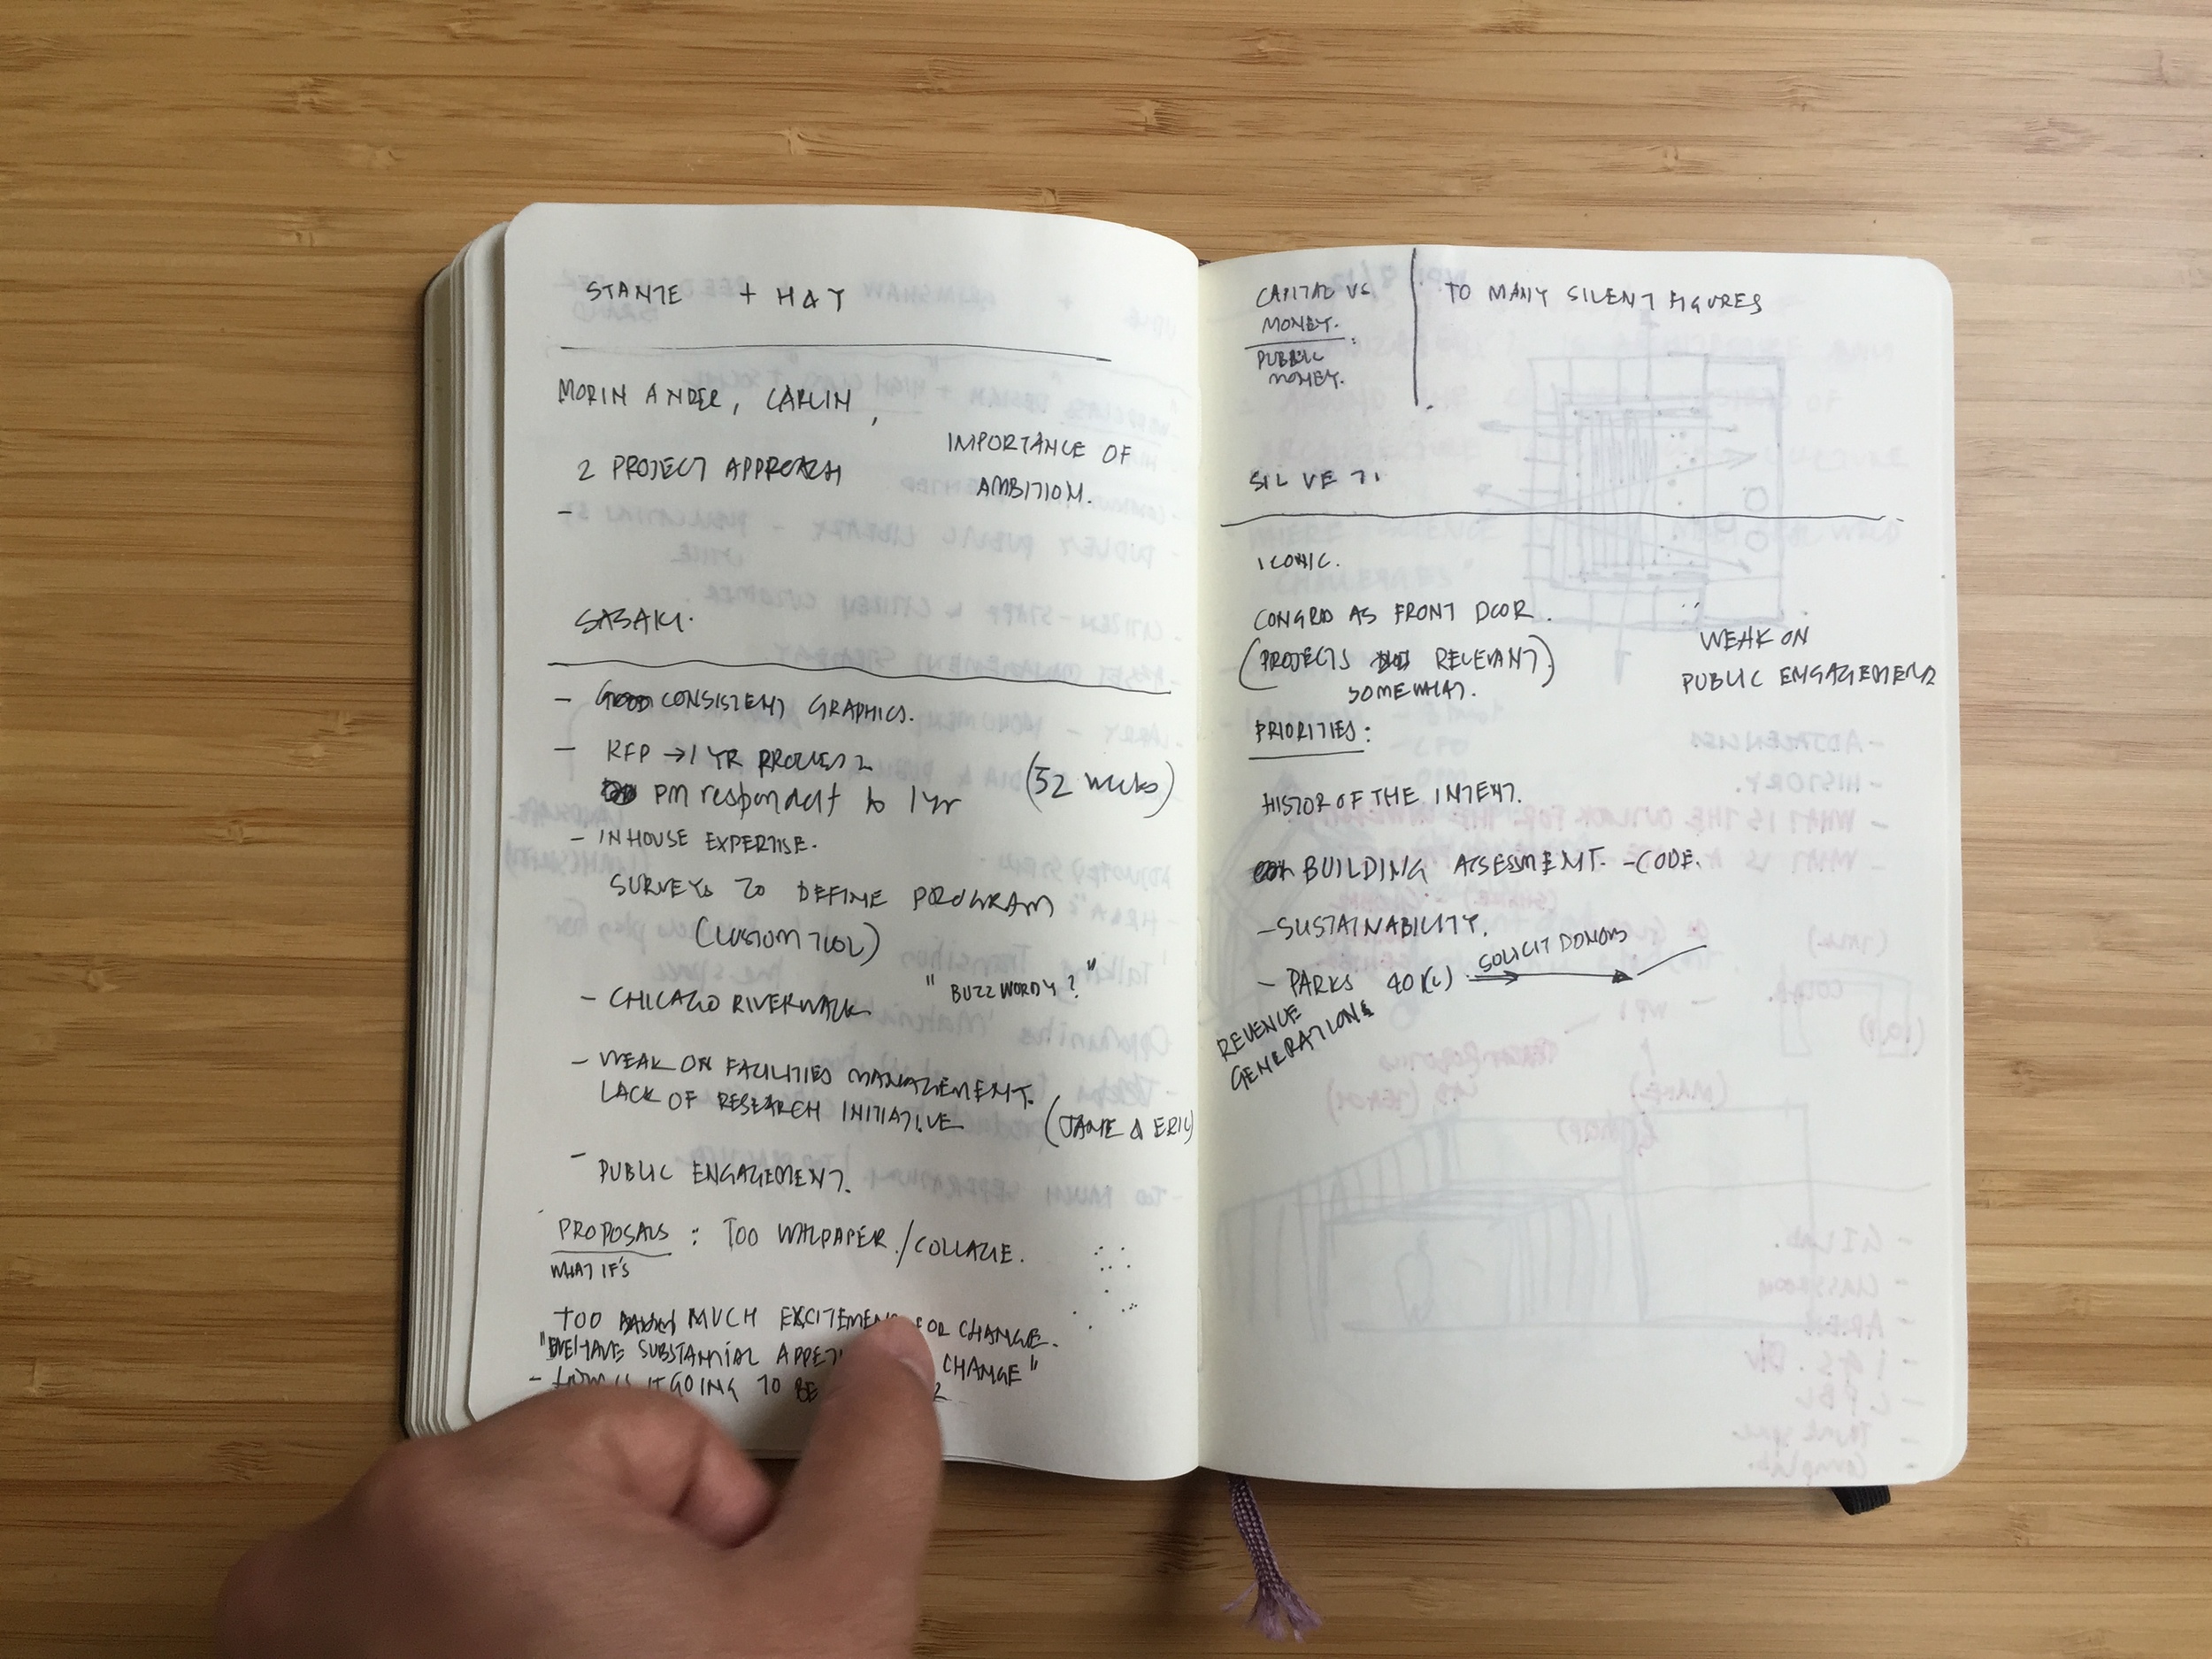 STANTE + HAY
MORIN ANDER, CARLIN,
2 PROJECT APPROACH
IMPORTANCE OF
AMBITION.
-
SASAKI.
- GOOD CONSISTENT GRAPHICS.
- RFP → 1 YR PROCESS
PM respondent to 1 yr
(52 weeks)
- IN HOUSE EXPERTISE.
SURVEYS TO DEFINE PROGRAM
(CUSTOM TOOL)
- CHICAGO RIVERWALK
" BUZZ WORDY ? "
- WEAK ON FACILITIES MANAGEMENT.
LACK OF RESEARCH INITIATIVE
(JANE & ERIC)
- PUBLIC ENGAGEMENT.
PROPOSALS : TOO WALPAPER / COLLAGE.
WHAT IF'S
TOO MUCH EXCITEMEN FOR CHANGE.
"WE HAVE SUBSTANTIAL APPET CHANGE"
- HOW IS IT GOING TO BE
CAPITAL VS
MONEY.
PUBLIC
MONEY.
TO MANY SILENT FIGURES
SILVETI
ICONIC.
CONGRD AS FRONT DOOR.
(PROJECTS RELEVANT)
SOMEWHAT.
WEAK ON
PUBLIC ENGAGEMENT
PRIORITIES:
HISTOR OF THE INTENT.
BUILDING ASSESSMENT. - CODE.
- SUSTAINABILITY.
- PARKS 40(C) SOLICIT DONORS
REVENUE
GENERATIONS